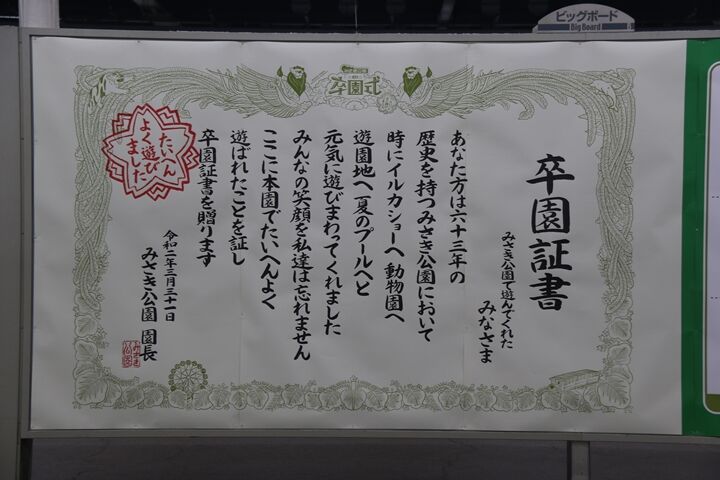 ビッグボード
Big Board
卒園式
卒園証書
みさき公園で遊んでくれた
みなさま
あなた方は六十三年の
歴史を持つみさき公園において
時にイルカショーへ動物園へ
遊園地へ夏のプールへと
元気に遊びまわってくれました
みんなの笑顔を私達は忘れません
ここに本園でたいへんよく
遊ばれたことを証し
卒園証書を贈ります
令和二年三月三十一日
みさき公園 園長
たいへん
よく遊び
ました